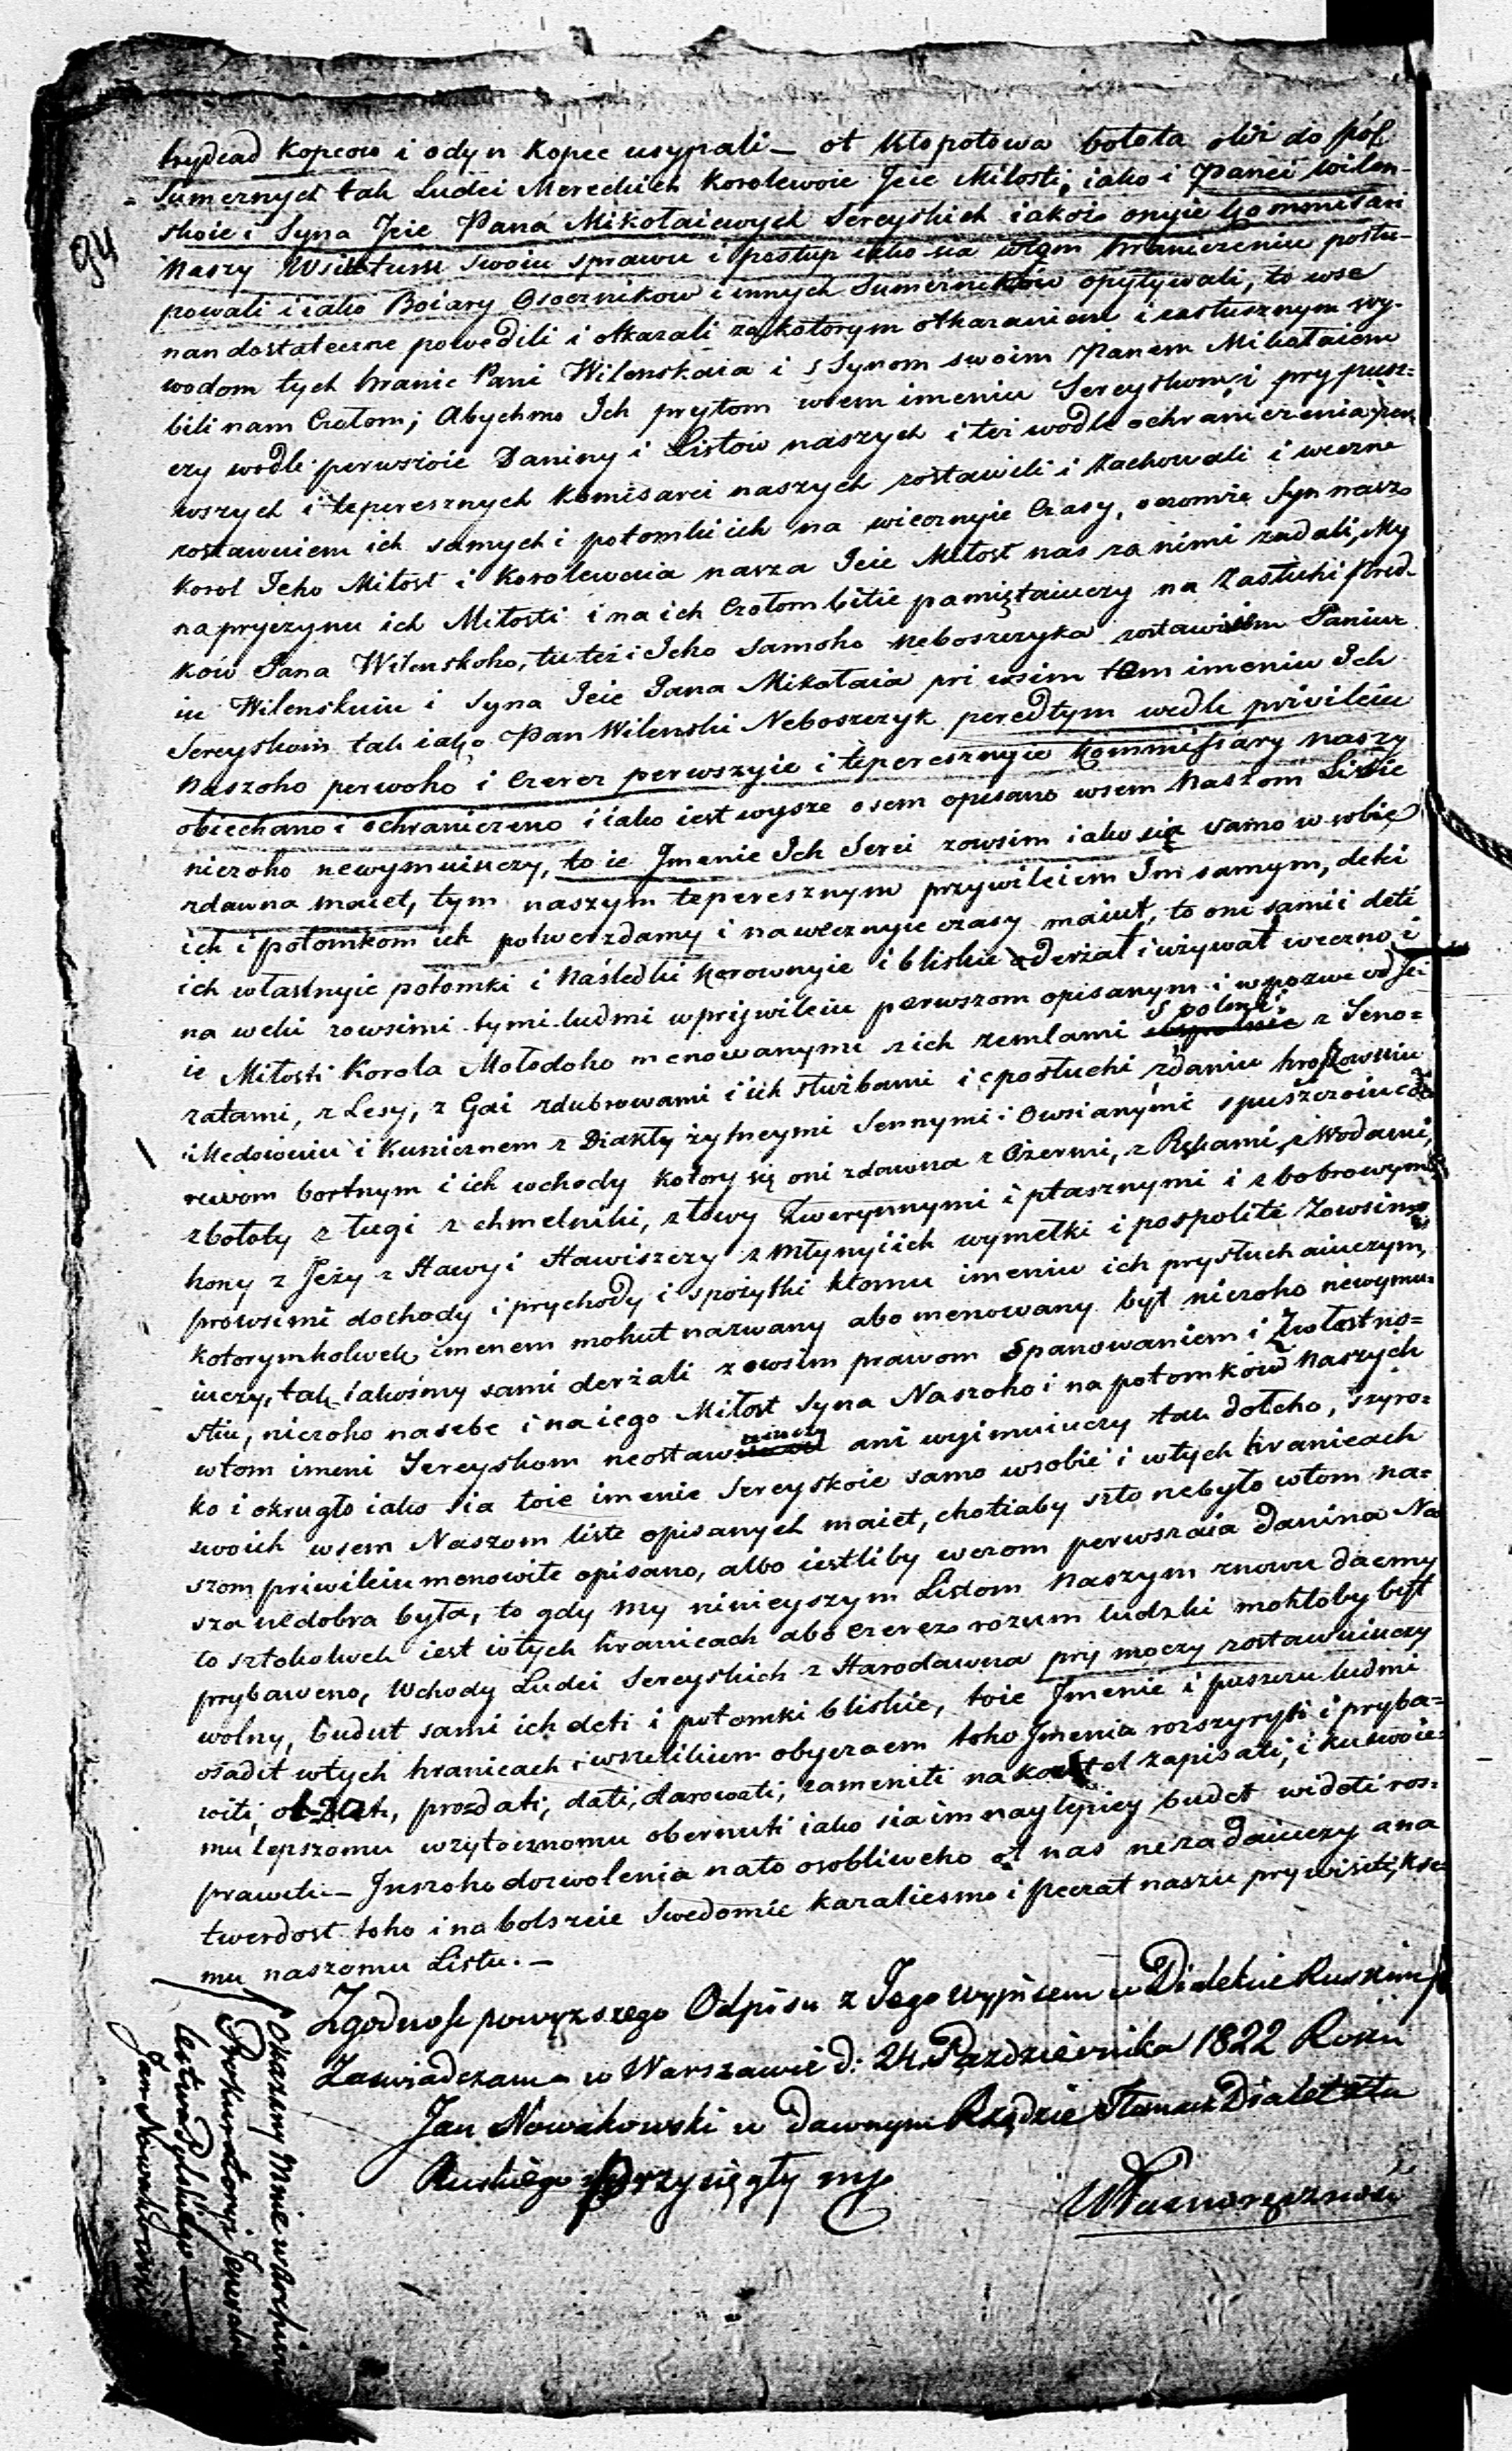 94
trydcad kopcow i odyn kopec usypali – ot kłopotowa bołota oliż do pół
Sumernych tak Ludei Mereckich Korolewoie Jeie Miłosti, iako i Panei Wilen-
skoie i Syna Jeie Pana Mikołaiewych Sereyskich iakoż onyie Kommisari
naszy Wsiu tuiu swoiu sprawu i postup iako sia wtom hraniczeniu postu-
powali i iako Boiary Osocznikow i innych Sumernikow opytywali, to wse
nam dostateczne powedili i okazali za kotorym otkazaniem i iastusznym wy-
wodom tych hranic Pani Wilenskaia i s Synom swoim Panem Mikołaiem
bili nam Czołom; Abychmo Ich prytom wsem imeniu Sereyskom i pry pusz-
czy wodle perwszoie Daniny i Listow naszych i też wodle ochraniczenia per-
wszych i teperesznych komisarei naszych zostawili i zachowali i weczne
zostawuiem ich samych i potomki ich na wiecznyie Czasy, o czomże Syn nasz
Korol Jeho Miłost i Korolewaia nasza Jeie Miłost nas za nimi żadali, My
na pryczynu ich Miłosti i na ich Czołombitie pamiętaiuczy na Zasłuhi pred-
ków Pana Wilenskoho, tu też i Jeho samoho neboszczyka zostawiliśm Paniuu
iu Wilenskuiu i Syna Jeie Pana Mikołaia pri wsim tom imeniu Ich
Sereyskom tak iako Pan Wilenski Neboszczyk peredtym wedle privileiu
Naszoho perwoho i Czerez perwszyie i teperesznyie Kommissary naszy
obiechano i ochraniczeno i iako iest wysze osem opisano wsem Naszom Listie
niczoho newymuiuczy, to ie Jmenie Ich Serei zowsim iako się samo w sobie
zdawna maiet, tym naszym teperesznym przywileiem Im samym, deti
ich i potomkom ich potwerzdamy i nawecznyie czasy maiut, to oni sami i deti
ich własnyie potomki i Naśledki Kerownyie i bliskie oderżat i używat weczno i
na weki zowsimi tymi ludmi w prijwileiu perwszom opisanym i wpozwe wd Je-
ie Miłosti Korola Mołodoho menowanymi s ich zemlami spolmi z Seno-
żatami, z Lesy, z Gai z dubrowami i ich służbami i sposłuchi z daniu hroszowuiu
i Medowuiu i Kunicznem z Diakły żytneymi Sennymi i Owsianymi spuszczoiu
rewom bortnym i ich wchody kotory się oni zdawna z Ożermi, z Rękami, z Wodami,
z bołoty z ługi z chmelniki, z łowy Zwerynnymi i ptasznymi i z bobrowymi
hony z Jeży z Stawy i Stawiszczy z Młyny i ich wymełki i pospolite Zowsimi
prowsimi dochody i prychody i spożytki ktomu imeniu ich prysłuchaiuczym,
kotorymkolwek imenem mohut nazwany abo menowany byt niczoho niewymu-
iuczy, tak iakośmy sami derżali zowsim prawom Spanowaniem i Zwłastno-
stiu, niczoho nasebe i na iego Miłost Syna Naszoho i na potomków Naszych
wtom imeni Sereyskom neostawuiuczy ani wyimuiuczy tak dołcho, i szyro-
ko i okrugło iako sia toie imenie Sereyskoie samo wsobie i wtych hranicach
swoich wsem Naszom liste opisanych maiet, chotiaby szto nebyło wtom na-
szom priwileiu menowite opisano, albo iestliby wczom perwszaia Danina Na-
sza nedobra była, to gdy my ninieyszym Listom Naszym znowu daemy
to sztokolwek iest wtych hranicach abo czerez rozum ludzki mohłoby byt
przybaweno, Wchody Ludei Sereyskich z Starodawna pry moczy zostawuiuczy
wolny, budut sami ich deti i potomki bliskie, toie Jmenie i puszczu ludmi
osadit wtych hranicach i wszelikim obyczaem toho Jmenia rozszyryti i pryba-
witi, prozdati, dati, darowati, zameniti na kostel zapisati, i ku swoie-
mu lepszomu wżytocznomu obernuti iako sia im naylepiey budet widoti ros-
prawetu – Jnszoho dozwolenia nato osobliwcho ot nas neżadaiuczy ana
twerdost toho i na bolszeie Swedomie kazaliesmo i peczat naszu prywisiti, k se-
mu naszomu Listu. –
Zgodność powyższego Odpisu z Jego wypisem w Dialekcie Ruskim
Zaswiadczam w Warszawie d: 24 Pazdziernika 1822 Roku
Jan Nowakowski w dawnym Rządzie Tłumacz Dialektu
Ruskiego przysięgły mp
Własnoręcznie
Okazany Mnie w Archium
Prokuratoryi Jeneral
Jan Nowakowski